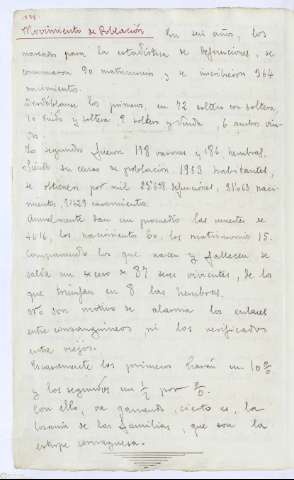 Movimiento de Población En seis años, los
marcados para la estadística de defunciones, se
consumaron 90 matrimonios y se inscribieron 364
nacimientos.
los primeros, en 72 soltero con soltera
10 viudo y soltera 2 soltero y viuda, 6 ambos viu-
dos.
Los segundos fueron 178 varones y 186 hembras.
Siendo su censo de población 1933 habitantes,
se obtienen por mil 23'68 defunciones, 31'03 naci-
mientos, casamientos.
Anualmente dan un promedio las muertes de
46'16, los nacimientos 60, los matrimonios 15.
Comparando los que nacen y fallecen se
salda un exceso de 87 seres vivientes, de lo
que triunfan en 8 las hembras.
No son motivo de alarma los enlaces
entre consanguíneos, ni los verificados
entre viejos.
Escasamente los primeros harán un 10 %
y los segundos un ½ por %.
Con ello, va ganando, cierto es, la
lozanía de las familias, que son la
estirpe